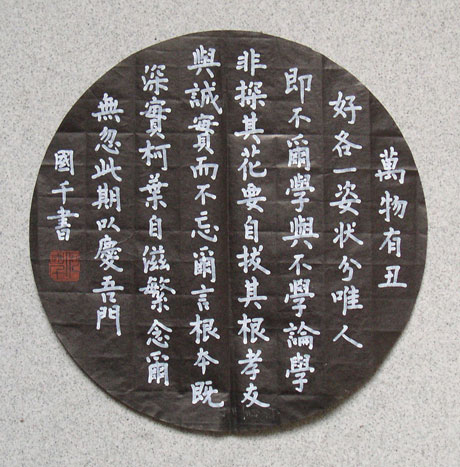 萬物有丑
好各一姿狀分唯人
即不爾學與不學論學
非探其花要自拔其根孝友
與誠實而不忘爾言根本既
深實柯葉自滋繁念爾
無忽此期以慶吾門
國千書